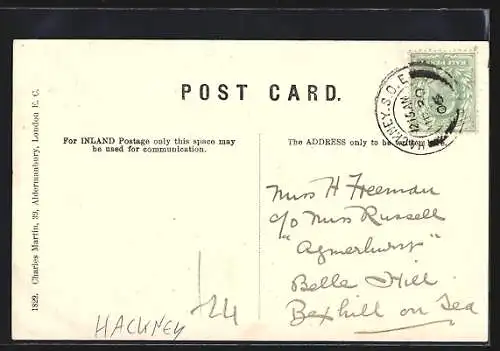 POST CARD.
For INLAND Postage only this space may
be used for communication.
The ADDRESS only to be written here.
HALF PENNY
HACKNEY. S.O.
12.15 AM
Miss H Freeman
c/o Miss Russell
"Agmerhurst"
Belle Hill
Bexhill on Sea
HACKNEY
1829. Charles Martin, 39, Aldermanbury, London E. C.